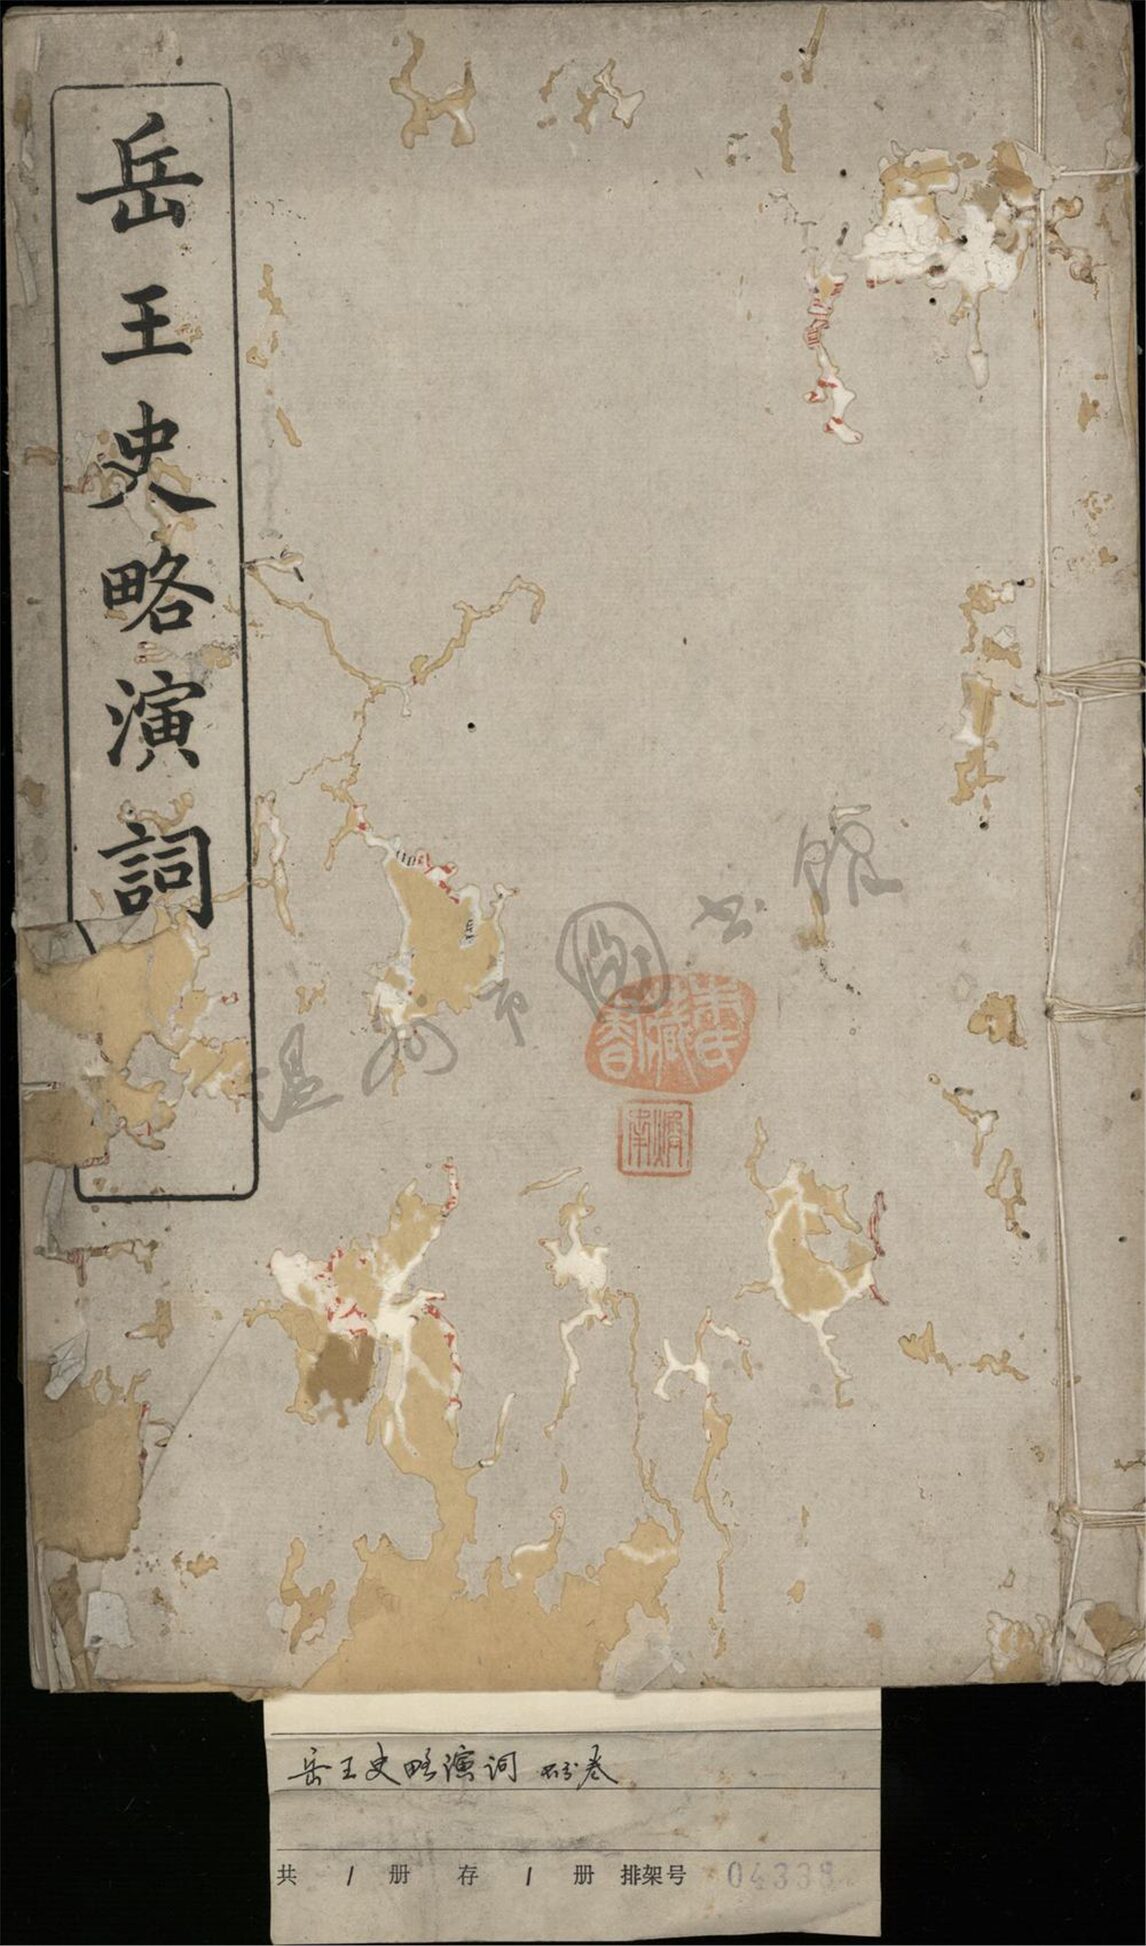 岳王史略演詞
温州市圖书館
岳王史略演词 不分卷
共 1 册 存 1 册 排架号 04338